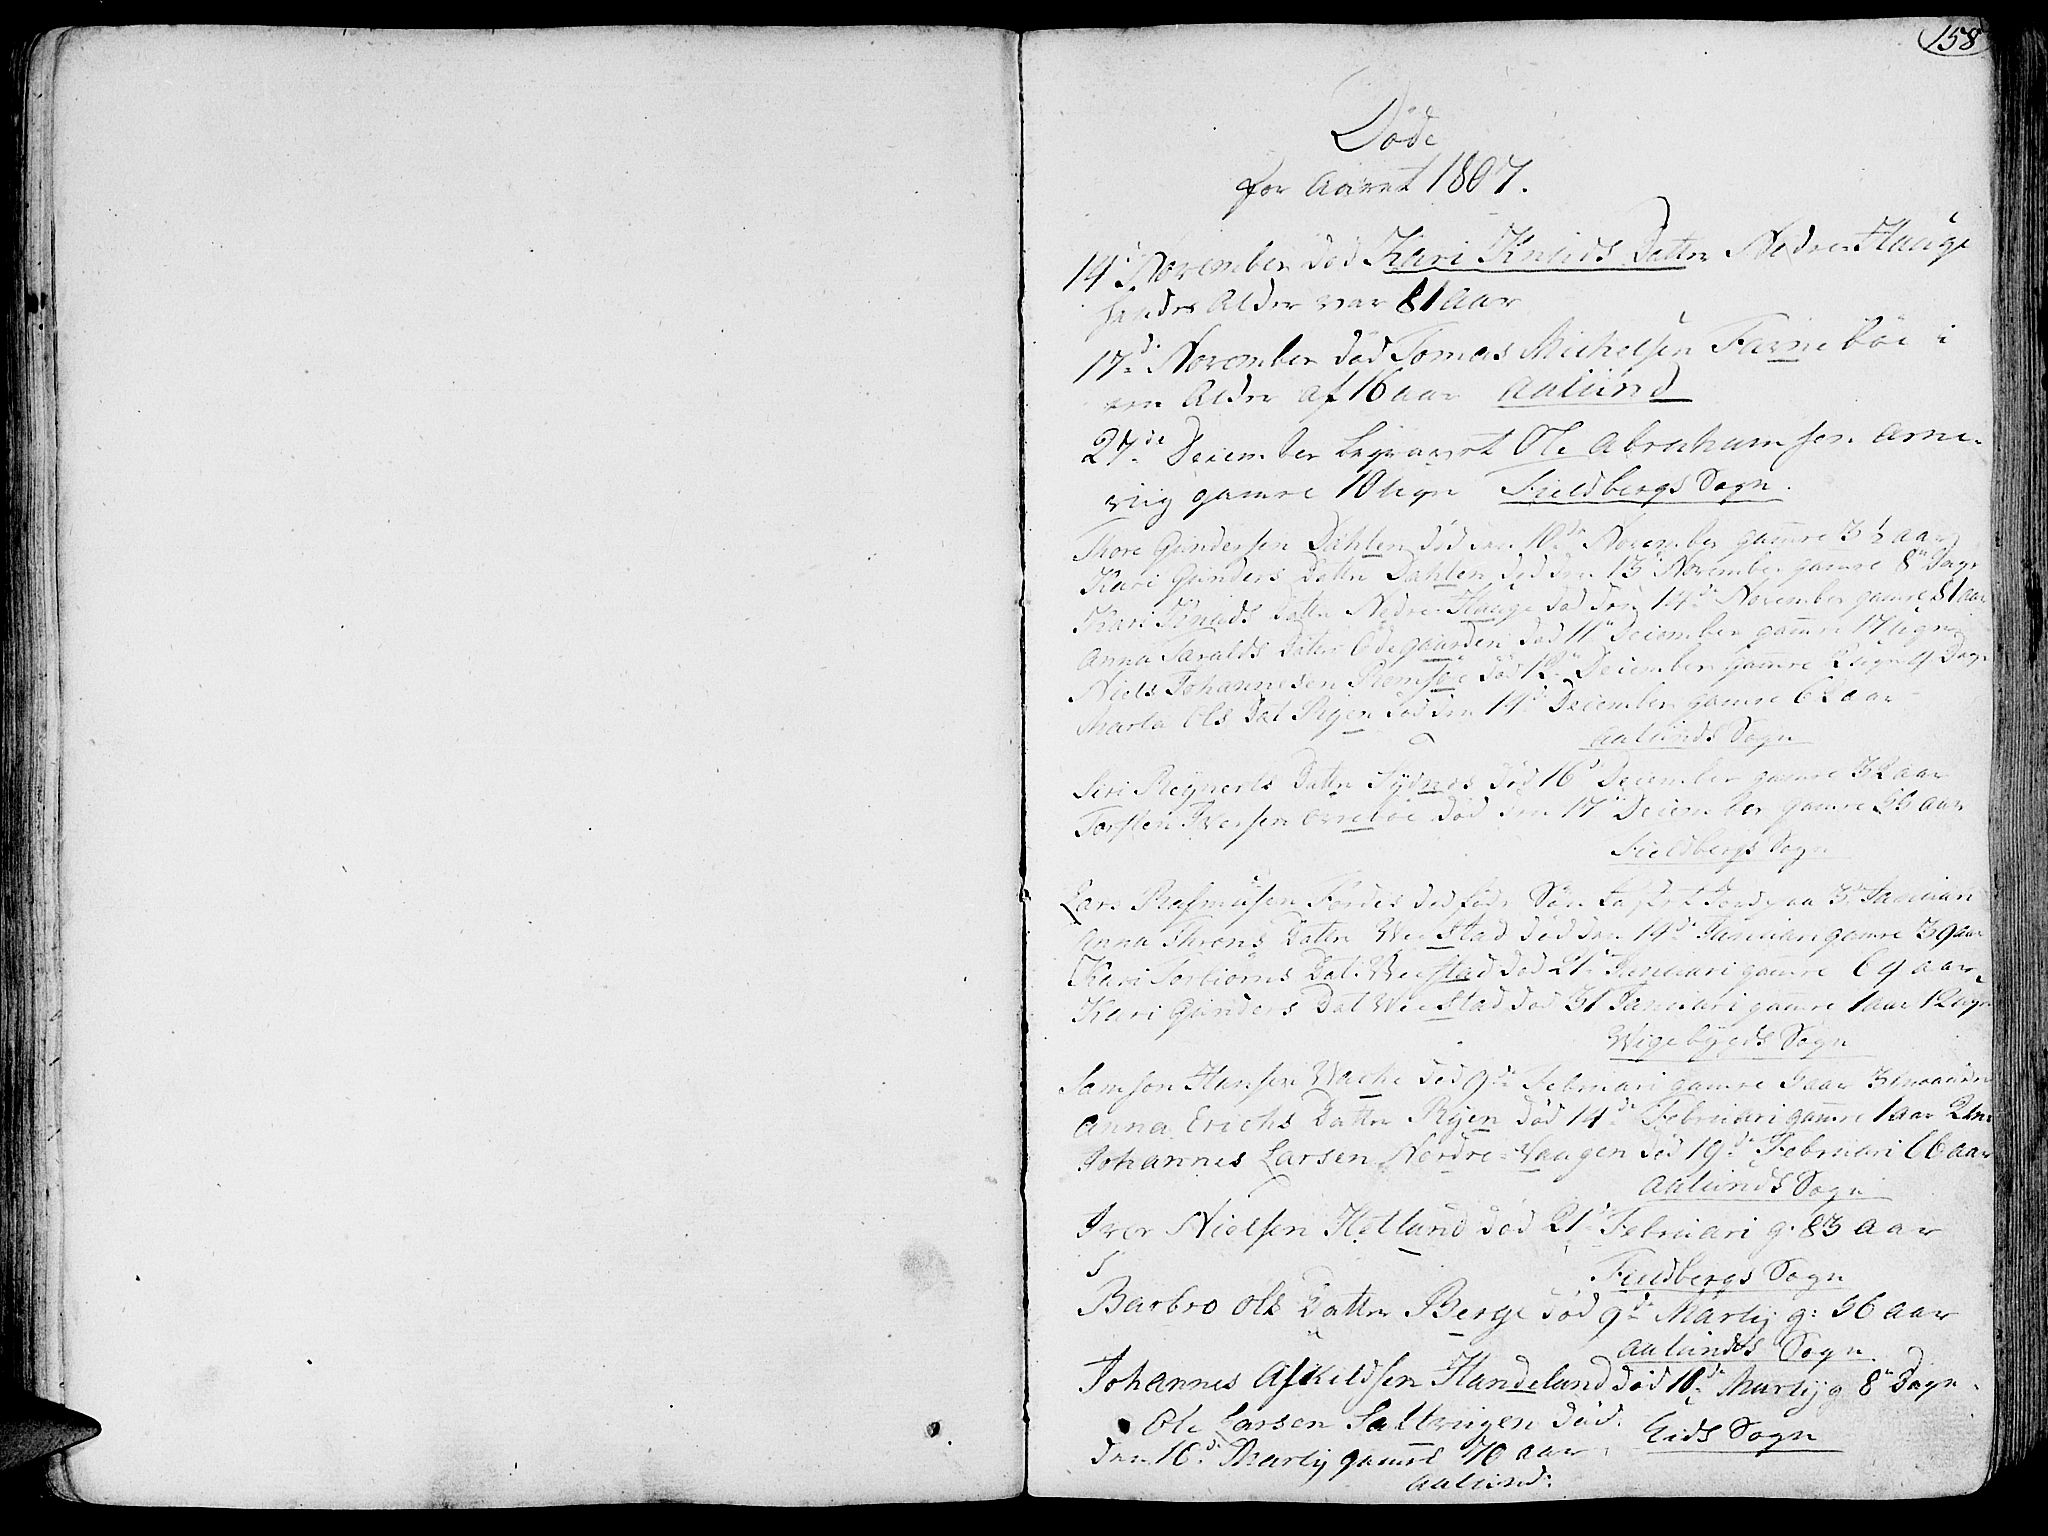 158
Døde
for Aaret 1807.
14d November død Kari Knuds Datter Nedre Hauge
hændes Alder var 81 Aar
17d November død Tomas Michelsen Favnebøe i
een Alder af 16 aar Aalund
27de December begravet Ole Abrahamsen Arne-
viig gamle 10 Uger Fieldbergs Sogn.
Thore Gundersen Dahlen død den 10de November gamle 3½ aar
Kari Gunders Datter Dahlen død den 13d November gamle 8 Dage
Kari Knuds Datter Nedre Hauge død den 14de November gamle 81 aar
Anna Taralds Datter Ødegaarden død 11 December gamle 17 Uger
Niels Johannesen død 12 December gamle 2 Uger 4 Dage
Marta Ols Dat Ryen død den 14d December gamle 62 aar
Aalunds Sogn
Siri Reynerts Datter Sydnes død 16d December gamle 32 aar
Torsten Iversen død den 17 December gamle 56 aar
Fieldbergs Sogn
Lars Rasmusen Førdes død født Søn 3d Januari
Anna Datter Weestad død den 14d Januari gamle 39 aar
Kari Torbiørns Dat: Weestad død 21d Januari gamle 69 aar
Kari Gunders Dat Weestad død 31 Januari gamle 1 aar 12 Uger
Wigebygds Sogn
Samson Hansen død 9de Februari gamle 5 aar 3 maaneder
Anna Erichs Datter Ryen død 14de Februari gamle 1 aar 2 m:
Johannes Larsen Nordre-Vaagen død 19de Februari 66 aar
Aalunds Sogn
Iver Nielsen Hetland død 21d Februari g. 83 aar
Fieldbergs Sogn
Barbro Ols Datter Berge død 9de Martij g: 56 aar
Aalunds Sogn
Johannes Askildsen Handeland død 10de Martij g 8 Dage
Eids Sogn
Ole Larsen død
den 16de Martij gamle 70 aar
Aalund: